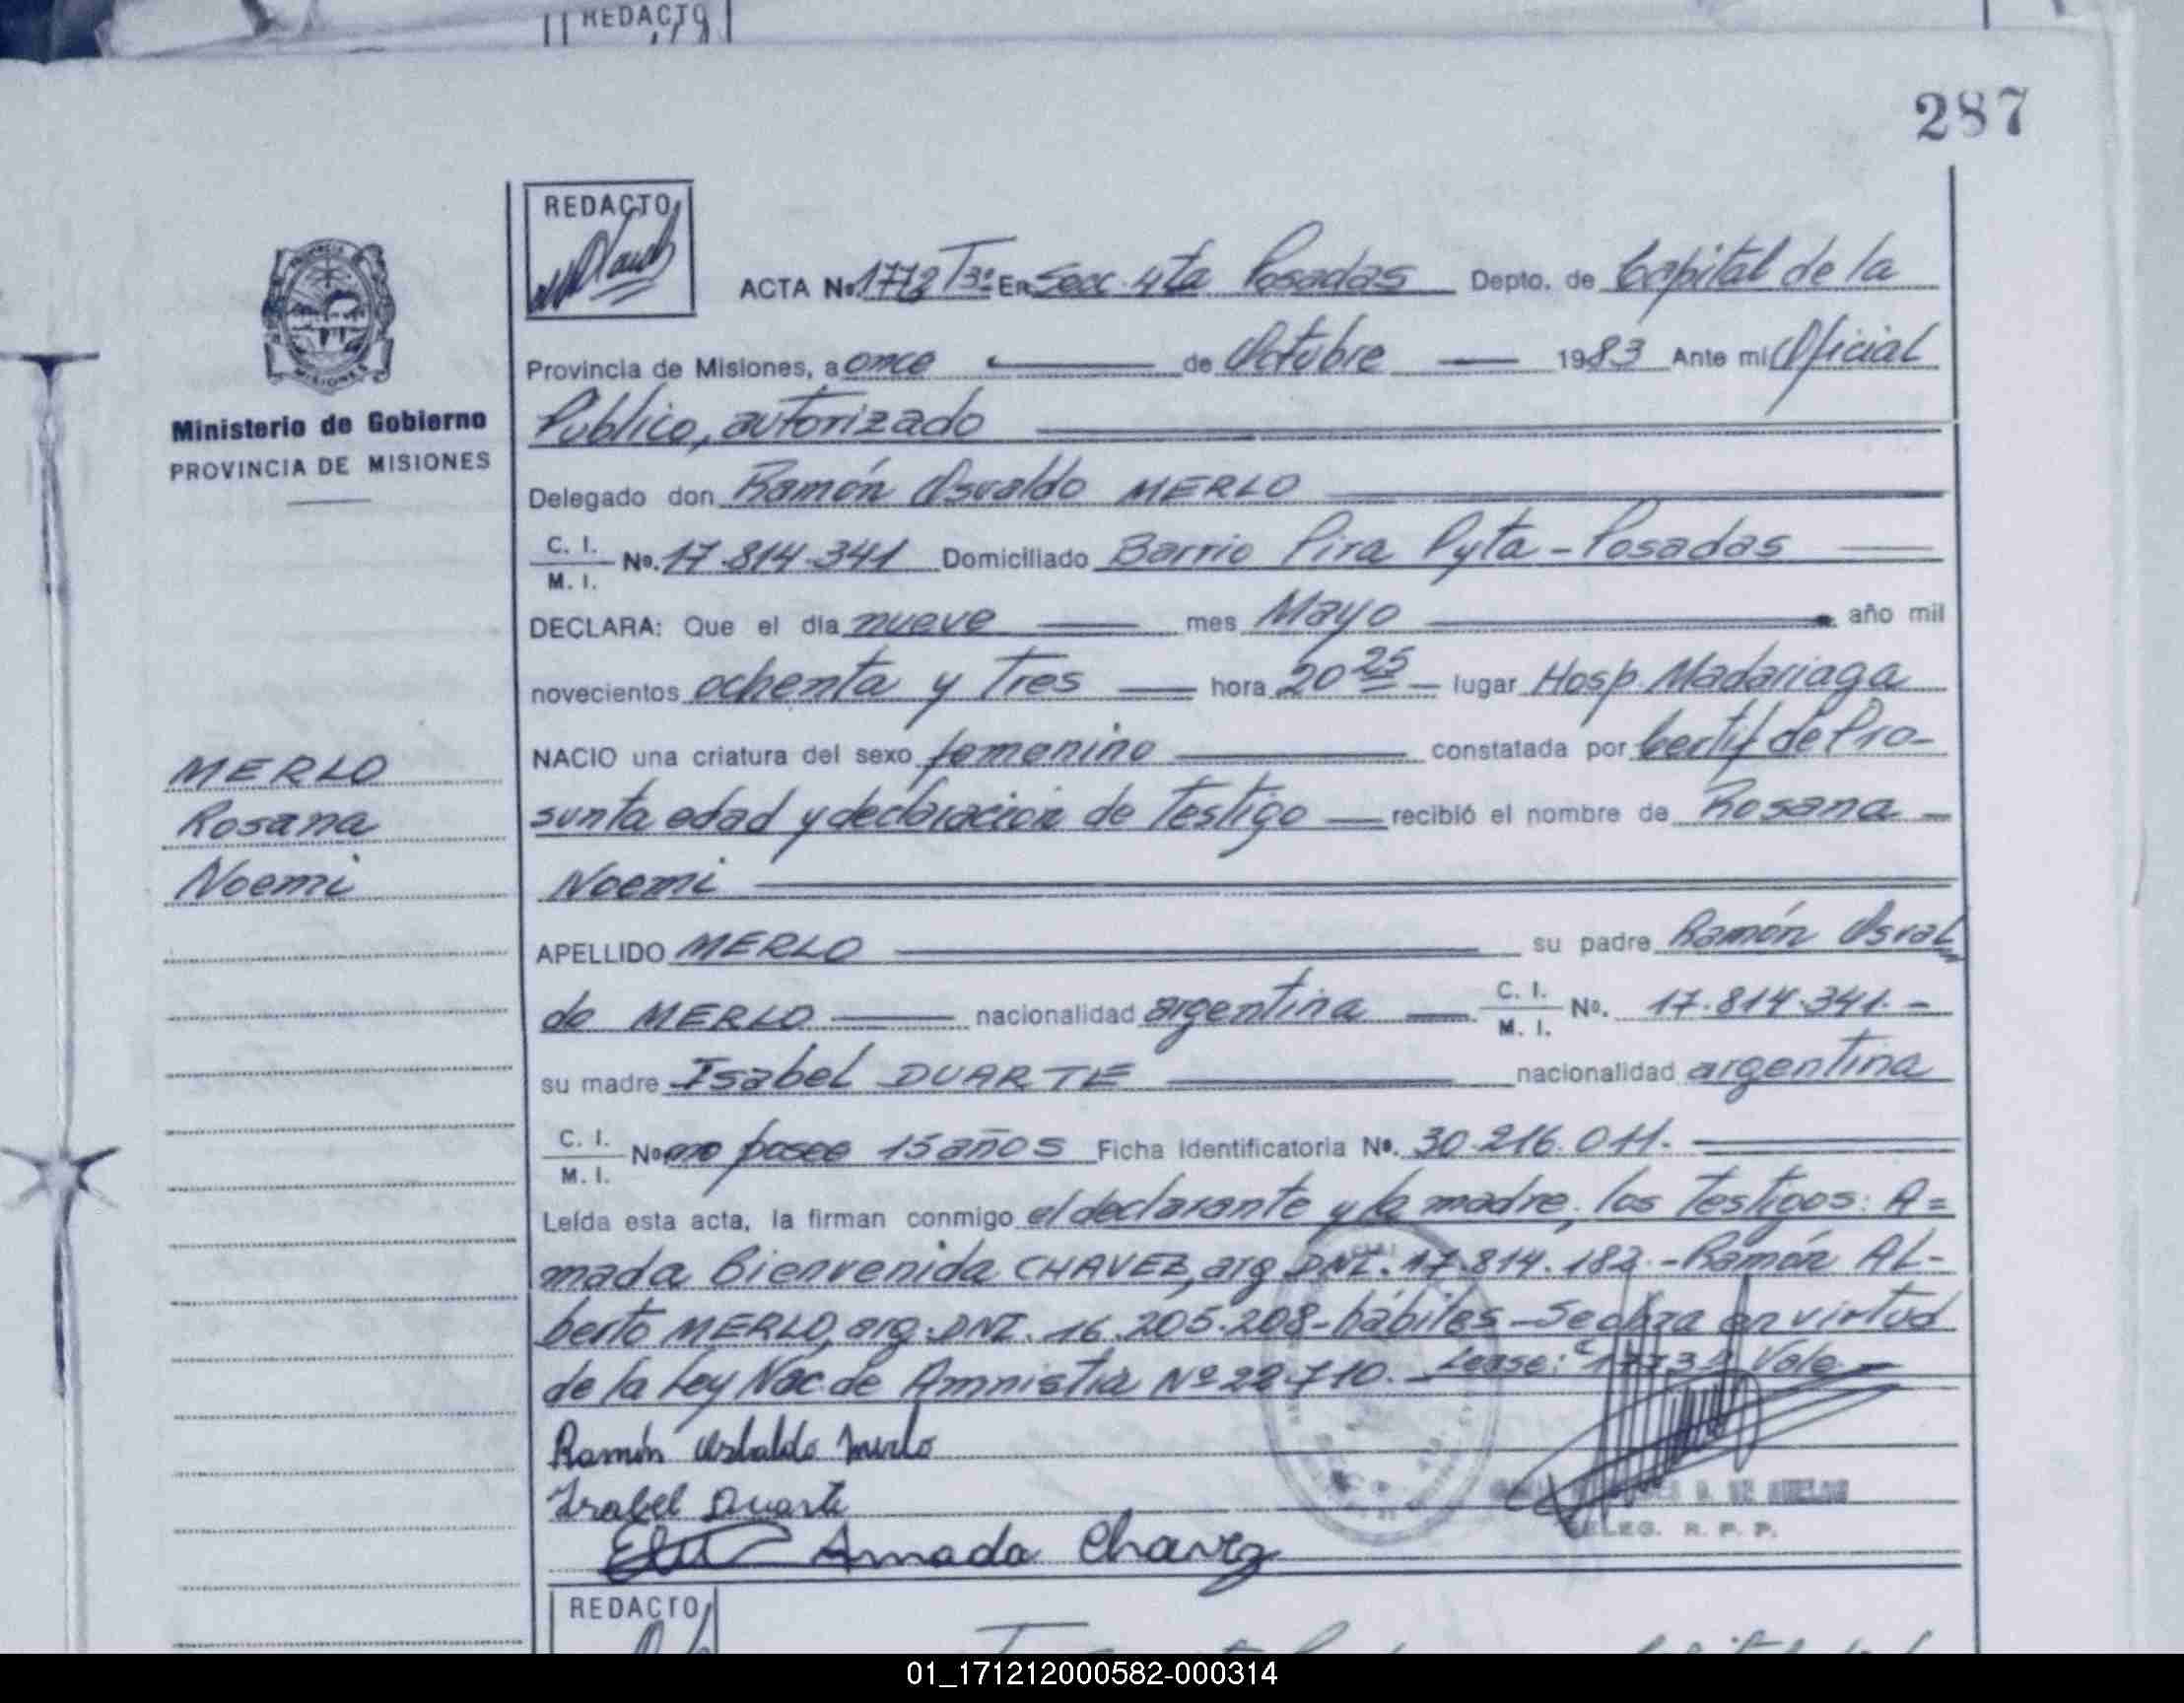 REDACTO
287
REDACTO
ACTA No. 1772 Tº 3º En Secc. 4ta Posadas Depto. de Capital de la
Provincia de Misiones, a once de Octubre 1983 Ante mi Oficial
Público, autorizado
Ministerio de Gobierno
PROVINCIA DE MISIONES
Delegado don Ramón Osvaldo MERLO
C. I.
M. I. No. 17.814.341 Domiciliado Barrio Pira Pyta - Posadas
DECLARA: Que el día nueve mes Mayo año mil
novecientos ochenta y Tres hora 20 25 lugar Hosp. Madariaga
NACIO una criatura del sexo femenino constatada por Certif de Pre-
MERLO
Rosana
Noemi
sunta edad y declaracion de Testigo recibió el nombre de Rosana
Noemi
APELLIDO MERLO su padre Ramón Osval
do MERLO nacionalidad argentina C. I.
M. I. No. 17.814.341.-
su madre Isabel DUARTE nacionalidad argentina
C. I.
M. I. No. no posee 15 años Ficha Identificatoria No. 30.216.011.
Leída esta acta, la firman conmigo el declarante y la madre, los Testigos: A=
mada Bienvenida CHAVEZ, arg. DNI. 17.814.182.- Ramón AL-
berto MERLO, arg. DNI. 16.205.208-hábiles - Se labra en virtud
de la Ley Nac. de Amnistia Nº 22.710. Lease: Vale
Ramón Osbaldo Merlo
Isabel Duarte
Amada Chavez
DELEG. R. P. P.
REDACTO
01_171212000582-000314